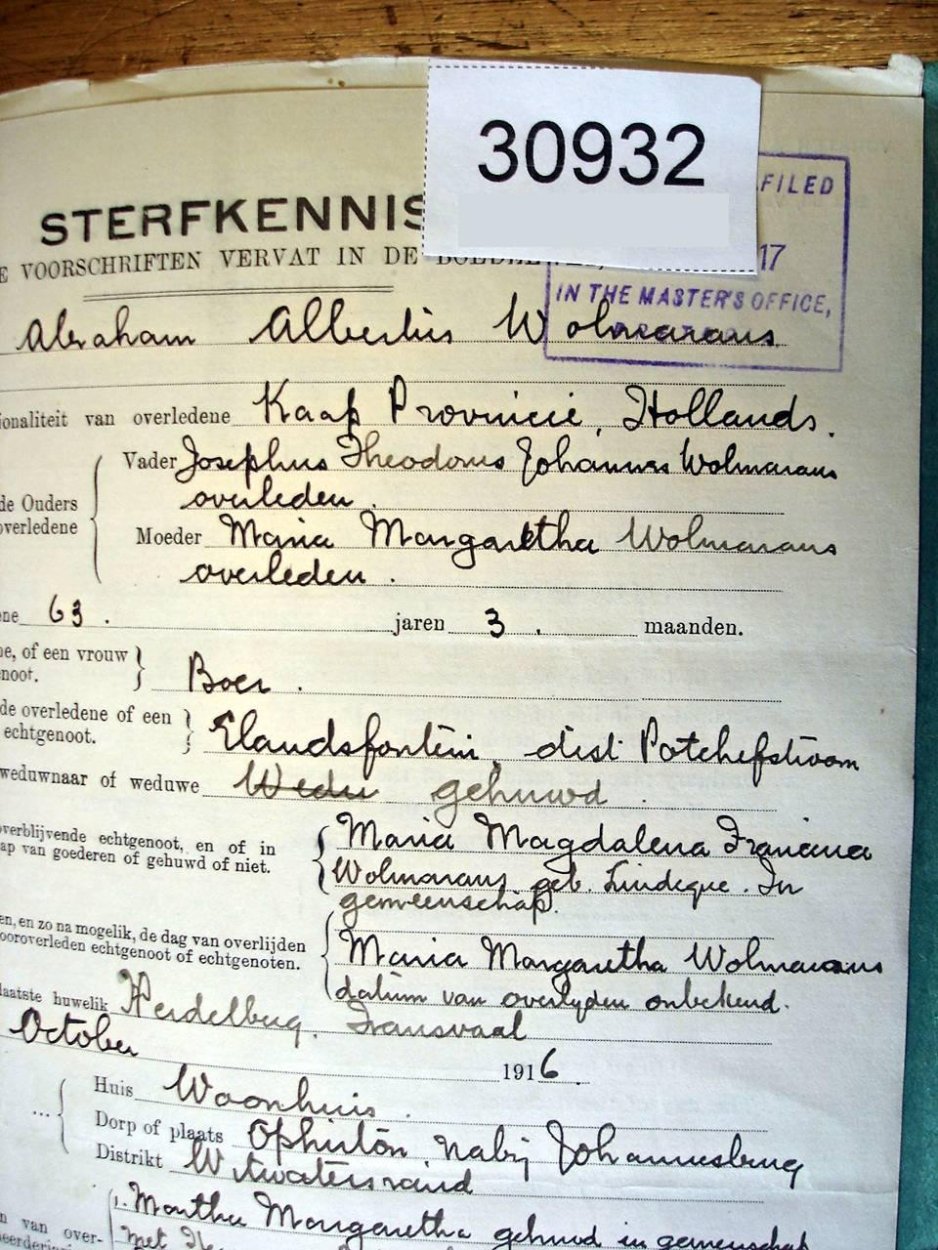 30932
FILED
STERFKENNIS
17
E VOORSCHRIFTEN VERVAT IN DE
IN THE MASTER'S OFFICE,
Abraham Albertus Wolmarans
ionaliteit van overledene Kaap Provincie, Hollands.
Vader Josephus Theodorus Johannes Wolmarans
overleden.
de Ouders
overledene
Moeder Maria Margaretha Wolmarans
overleden.
ne 63. jaren 3. maanden.
ne, of een vrouw
noot.
Boer.
de overledene of een
echtgenoot.
Elandsfontein, dist Potchefstroom
weduwnaar of weduwe Wedu gehuwd.
verblijvende echtgenoot, en of in
ap van goederen of gehuwd of niet.
Maria Magdalena
Wolmarans, geb. Lindeque. In
gemeenschap.
en, en zo na mogelik, de dag van overlijden
ooroverleden echtgenoot of echtgenoten.
Maria Margaretha Wolmarans
datum van overlyden onbekend.
laatste huwelik Heidelberg. Transvaal
October 1916.
Huis Woonhuis.
Dorp of plaats Ophirton, nabij Johannesburg
Distrikt Witwatersrand
1. Martha Margaretha gehuwd in gemeenschap
n van over-
met